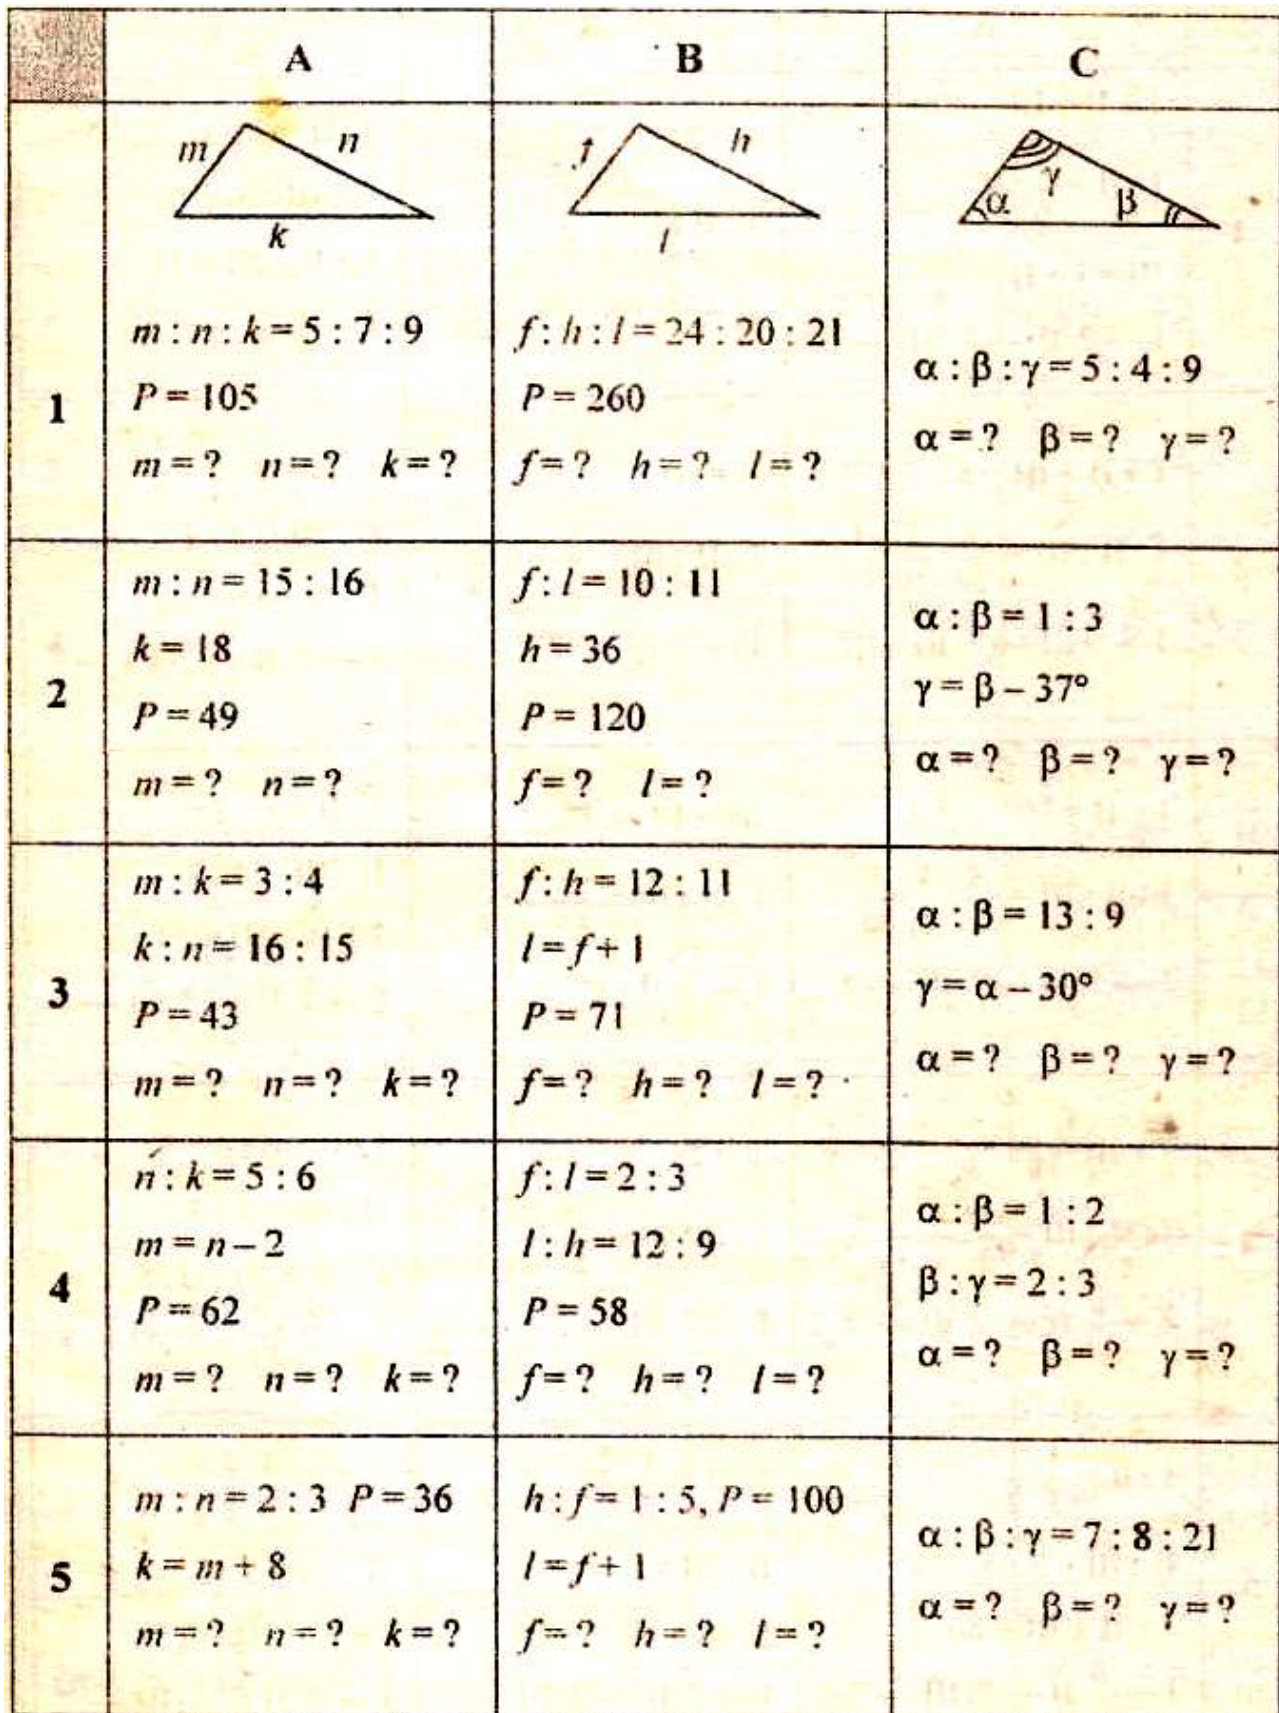 A B C
m n k
f h l
α γ β
1
m : n : k = 5 : 7 : 9
P = 105
m = ? n = ? k = ?
f : h : l = 24 : 20 : 21
P = 260
f = ? h = ? l = ?
α : β : γ = 5 : 4 : 9
α = ? β = ? γ = ?
2
m : n = 15 : 16
k = 18
P = 49
m = ? n = ?
f : l = 10 : 11
h = 36
P = 120
f = ? l = ?
α : β = 1 : 3
γ = β – 37°
α = ? β = ? γ = ?
3
m : k = 3 : 4
k : n = 16 : 15
P = 43
m = ? n = ? k = ?
f : h = 12 : 11
l = f + 1
P = 71
f = ? h = ? l = ?
α : β = 13 : 9
γ = α – 30°
α = ? β = ? γ = ?
4
n : k = 5 : 6
m = n – 2
P = 62
m = ? n = ? k = ?
f : l = 2 : 3
l : h = 12 : 9
P = 58
f = ? h = ? l = ?
α : β = 1 : 2
β : γ = 2 : 3
α = ? β = ? γ = ?
5
m : n = 2 : 3 P = 36
k = m + 8
m = ? n = ? k = ?
h : f = 1 : 5, P = 100
l = f + 1
f = ? h = ? l = ?
α : β : γ = 7 : 8 : 21
α = ? β = ? γ = ?